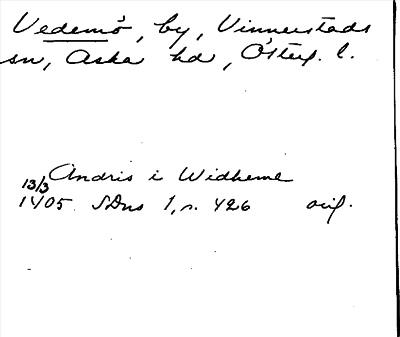 Vedemö, by, Vinnerstads
sn, Aska hd, Östergl. l.
Andris i Widheme
13/3
1405 SDns 1, s. 426 orig.